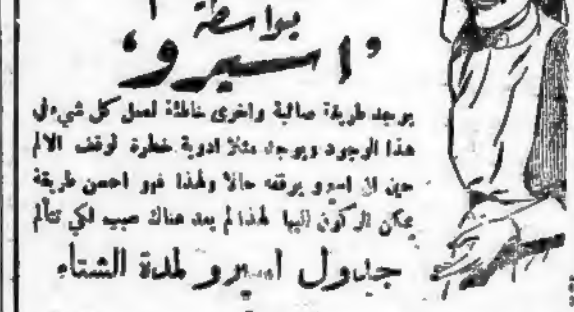 بواسطة
'اسبرو'
يوجد طريقة صائبة واخرى خاطئة لعمل كل شيء في
هذا الوجود ويوجد مثلا ادوية خطرة لوقف الالم
حين ان اسبرو يوقفه حالا ولهذا فهو احسن طريقة
يمكن الركون اليها لهذا لم يعد هناك سبب لكي تتألم
جدول اسبرو لمدة الشتاء